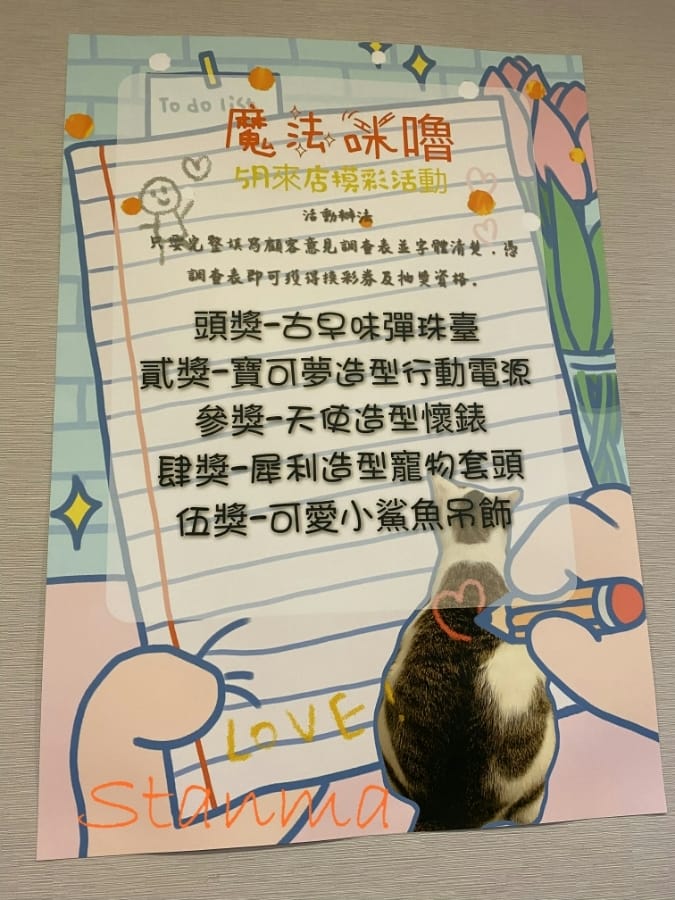 To do list
魔法咪嚕
5月來店摸彩活動
活動辦法
只要完整填寫顧客意見調查表並字體清楚，憑
調查表即可獲得摸彩券及抽獎資格。
頭獎-古早味彈珠臺
貳獎-寶可夢造型行動電源
參獎-天使造型懷錶
肆獎-犀利造型寵物套頭
伍獎-可愛小鯊魚吊飾
LOVE
Stanma